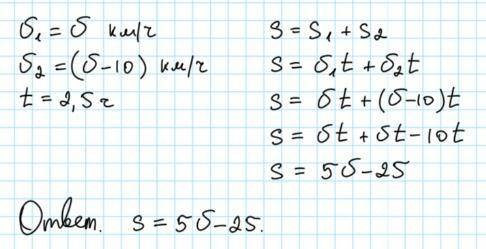 δ₁ = δ км/ч
δ₂ = (δ-10) км/ч
t = 2,5 ч
S = S₁ + S₂
S = δ₁t + δ₂t
S = δt + (δ-10)t
S = δt + δt - 10t
S = 5δ - 25
Ответ. S = 5δ - 25.